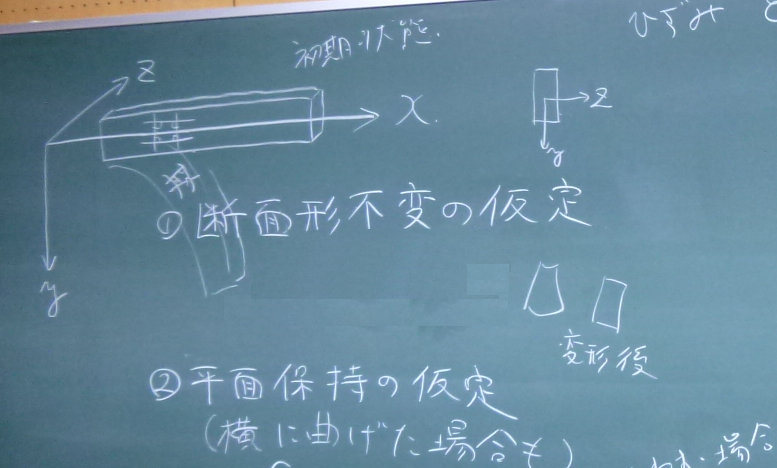 ひずみ
初期状態.
z
x.
z
y
①断面形不変の仮定
y
変形後
②平面保持の仮定
(横に曲げた場合も)
場合